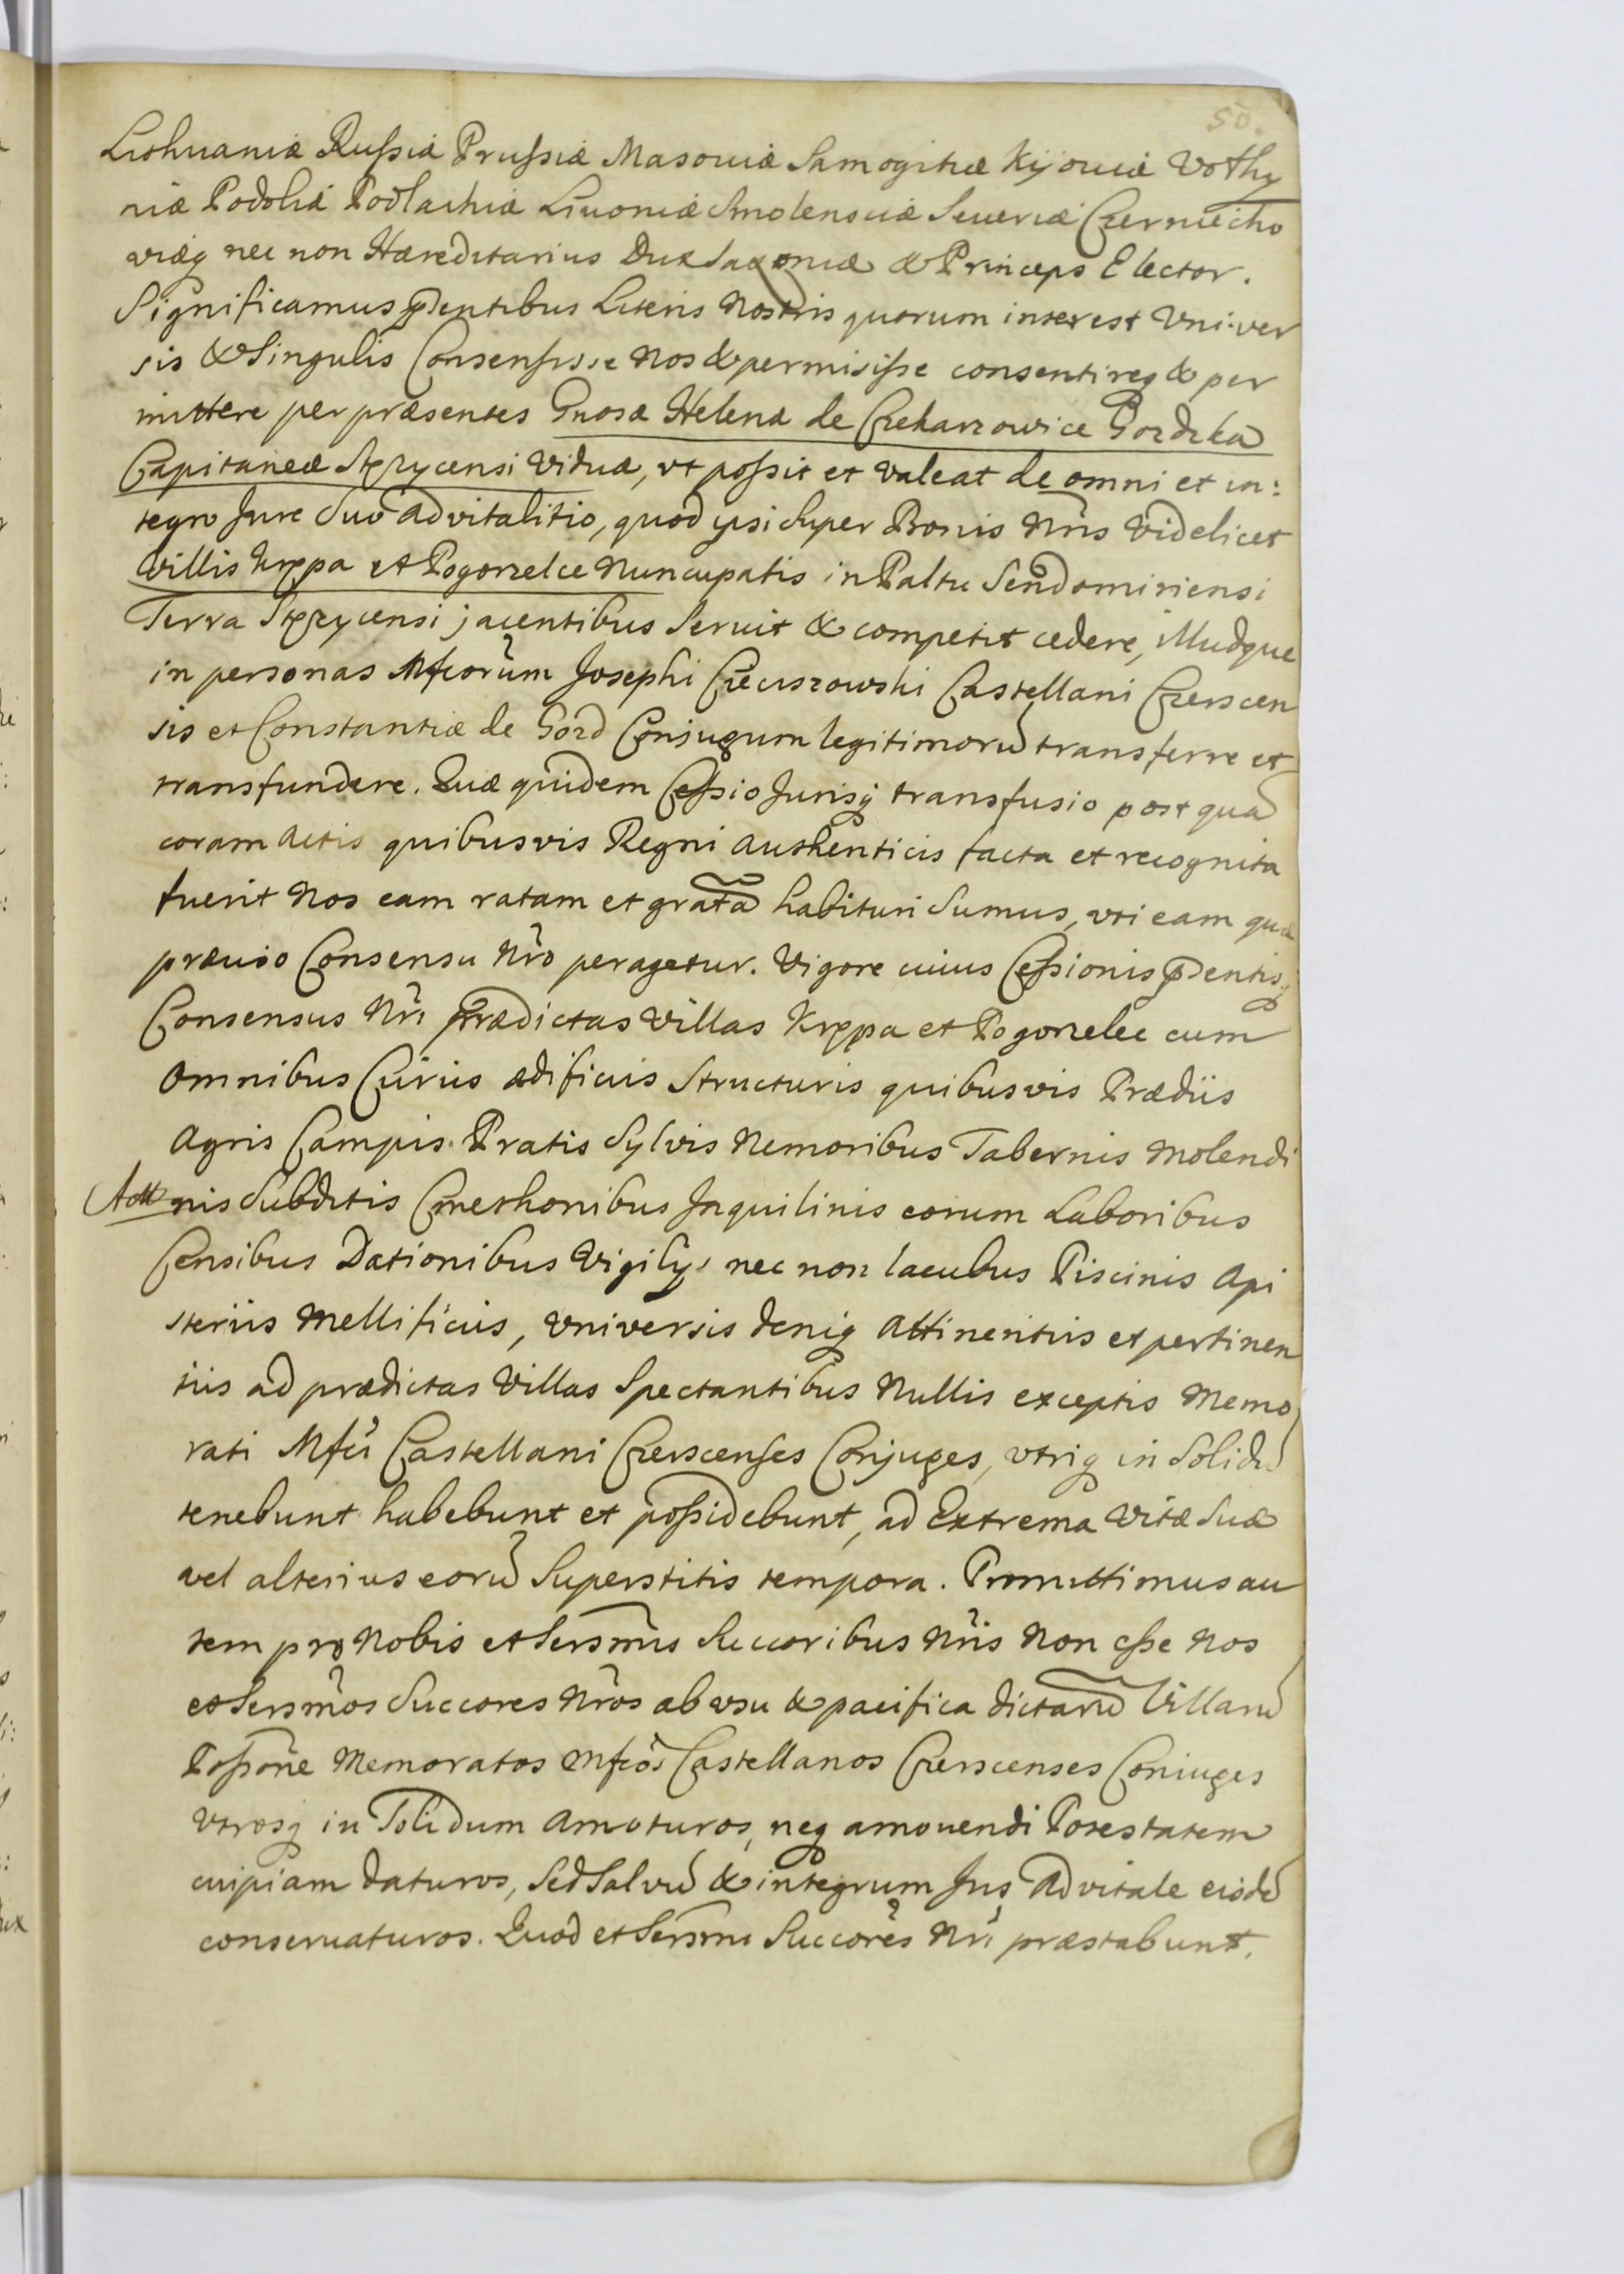 50.
Lithuaniæ Russiæ Prussiæ Masoviæ Samogitiæ Kijoviæ Volhy
niæ Podoliæ Podlachiæ Livoniæ Smolensciæ Severiæ Czerniecho
viæq nec non Hæreditarius Dux Saxoniæ & Princeps Elector.
Significamus pñtentibus Literis Nostris quorum interest Univer
sis & Singulis Consensisse Nos & permisisse consentireq & per
mittere per præsentes Gnosæ Helenæ de Czekarzowice Gozdzka
Capitaneæ Stęzycensi Viduæ, vt possit et valeat de omni et in:
tegro Jure Suo advitalitio, quod ipsi Super Bonis Nris Videlicet
Villis Krępa et Pogorzelce Nuncupatis in Paltu Sendomiriensi
Terra Stęzycensi jacentibus Servit & competit cedere, Illudque
in personas Mfcorum Josephi Cieciszowski Castellani Czerscen
sis et Constantiæ de Gozd Conjugum legitimorũ transferre et
transfundere. Quæ quidem Cessio Jurisq transfusio post quã
coram Actis quibusvis Regni Authenticis facta et recognita
fuerit Nos eam ratam et gratã habituri Sumus, vti eam quæ
prævio Consensu Nro peragetur. Vigore cuius Cessionis pñdentisq
Consensus Nri prædictas Villas Krępa et Pogorzelec cum
Omnibus Curiis ædificiis Structuris quibusvis Prædiis
Agris Campis Pratis Sylvis Nemoribus Tabernis Molendi
nis Subditis Cmethonibus Inquilinis eorum Laboribus
Censibus Dationibus Vigilijs nec non lacubus Piscinis Api
steriis Mellificiis, Universis deniq Attinentiis et pertinen
tiis ad prædictas Villas Spectantibus Nullis exceptis Memo
rati Mfci Castellani Czerscenses Conjuges, vtriq in Solidũ
tenebunt habebunt et possidebunt, ad Extrema Vitæ Suæ
vel alterius eorũ Superstitis tempora. Promittimus au
tem pro Nobis et Sersmis Succoribus Nris Non esse Nos
et Sersmos Succores Nros ab vsu & pacifica dictarũ Villarũ
Possone Memoratos Mfcos Castellanos Czerscenses Coniuges
Vtrosq in Solidum Amoturos, neq amovendi Potestatem
cuipiam daturos, Sed Salvũ & integrum Jus Advitale eisdẽ
conservaturos. Quod et Sersmi Succores Nri præstabunt.